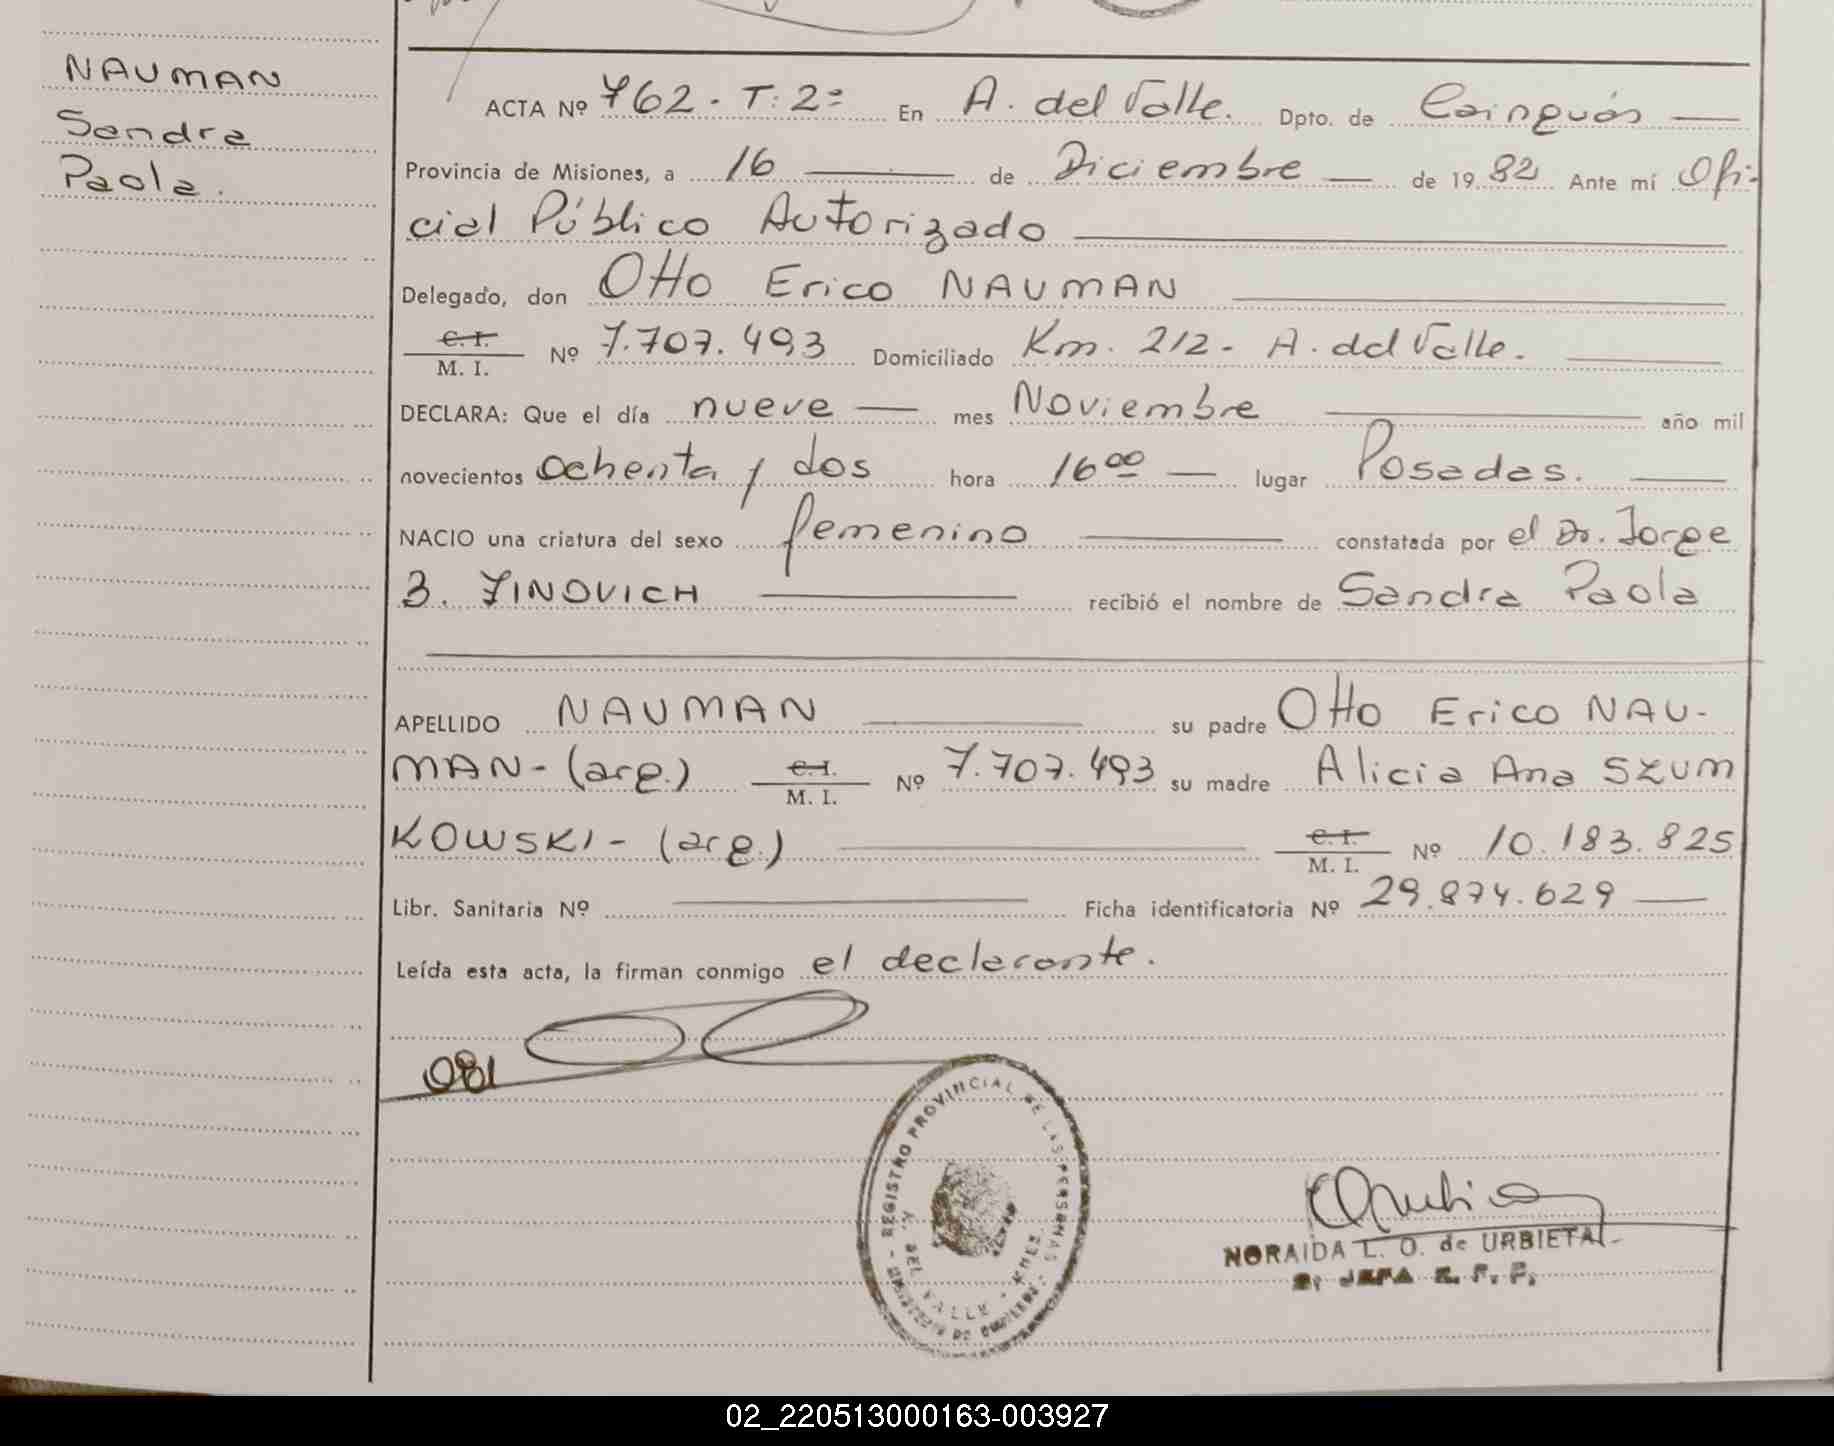 NAUMAN
Sandra
Paola.
ACTA Nº 762. T: 2º En A. del Valle. Dpto. de Cainguás
Provincia de Misiones, a 16 de Diciembre de 1982 Ante mí Ofi-
cial Público Autorizado
Delegado, don Otto Erico NAUMAN
C. I.
M. I. Nº 7.707.493 Domiciliado Km. 212- A. del Valle.
DECLARA: Que el día nueve mes Noviembre año mil
novecientos ochenta y dos hora 16⁰⁰ lugar Posadas.
NACIO una criatura del sexo femenino constatada por el Dr. Jorge
B. ZINOVICH recibió el nombre de Sandra Paola
APELLIDO NAUMAN su padre Otto Erico NAU-
MAN- (arg.) C. I. M. I. Nº 7.707.493 su madre Alicia Ana SZUM
KOWSKI- (arg.) C. I. M. I. Nº 10.183.825
Libr. Sanitaria Nº Ficha identificatoria Nº 29.874.629
Leída esta acta, la firman conmigo el declarante.
REGISTRO PROVINCIAL DE LAS PERSONAS
A. DEL VALLE - MNES.
NORAIDA L. O. de URBIETA
JEFA
02_220513000163-003927